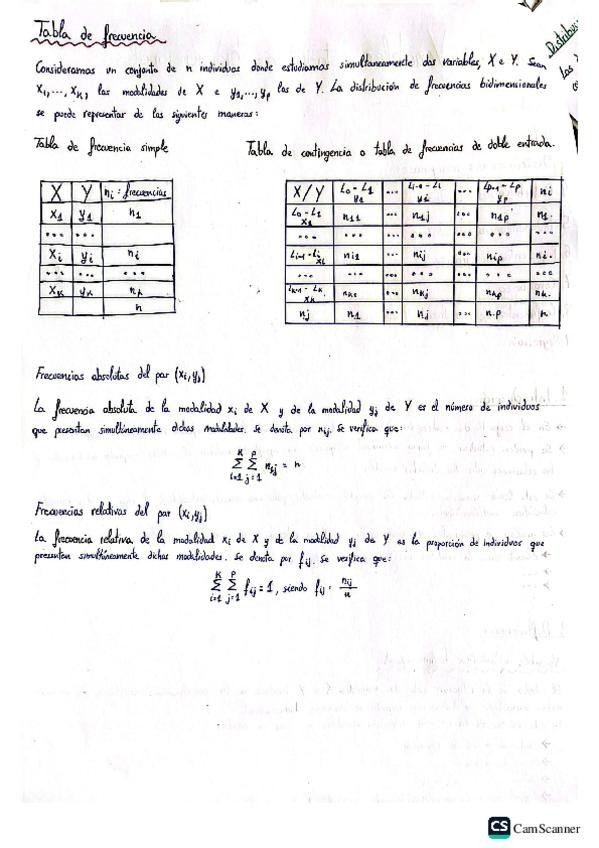 Tabla de frecuencia
Consideramos un conjunto de n individuos donde estudiamos simultaneamente dos variables, X e Y. Sean
x₁,..., xₖ, las modalidades de X e y₁,..., yₚ las de Y. La distribución de frecuencias bidimensionales
se puede representar de las siguientes maneras:
Tabla de frecuencia simple
Tabla de contingencia o tabla de frecuencias de doble entrada.
X Y nᵢ: frecuencias
x₁ y₁ n₁
... ...
xᵢ yᵢ nᵢ
... ... ...
xₖ yₖ nₖ
n
X/Y L₀-L₁ y₁ ... Lⱼ₋₁-Lⱼ yⱼ ... Lₚ₋₁-Lₚ yₚ nᵢ
L₀-L₁ x₁ n₁₁ ... n₁ⱼ ... n₁ₚ n₁.
... ... ... ... ... ... ...
Lᵢ₋₁-Lᵢ xᵢ nᵢ₁ ... nᵢⱼ ... nᵢₚ nᵢ.
... ... ... ... ... ... ...
Lₖ₋₁-Lₖ xₖ nₖ₁ ... nₖⱼ ... nₖₚ nₖ.
nⱼ n₁ ... nⱼ ... n.p n
Frecuencias absolutas del par (xᵢ,yⱼ)
La frecuencia absoluta de la modalidad xᵢ de X y de la modalidad yⱼ de Y es el número de individuos
que presentan simultáneamente dichas modalidades. Se denota por nᵢⱼ. Se verifica que:
∑ᵢ₌₁ᴷ ∑ⱼ₌₁ᴾ nᵢⱼ = n
Frecuencias relativas del par (xᵢ,yⱼ)
La frecuencia relativa de la modalidad xᵢ de X y de la modalidad yⱼ de Y es la proporción de individuos que
presentan simultáneamente dichas modalidades. Se denota por fᵢⱼ. Se verifica que:
∑ᵢ₌₁ᴷ ∑ⱼ₌₁ᴾ fᵢⱼ = 1, siendo fᵢⱼ = nᵢⱼ/n
CS CamScanner